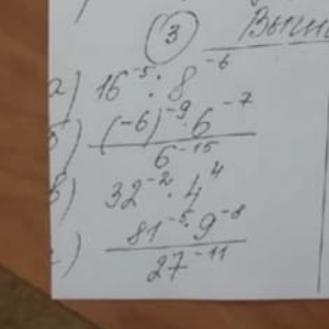 ③ Вычи
а) 16⁻⁵ : 8⁻⁶
б) (-6)⁻⁹ · 6⁻⁷ / 6⁻¹⁵
в) 32⁻² · 4⁴
г) 81⁻⁵ · 9⁻⁸ / 27⁻¹¹